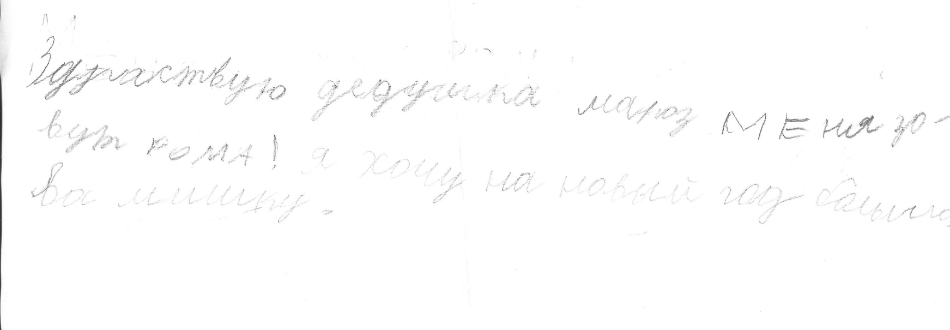 Здраствую дедушка мароз МЕНЯ зо-
вут РОМА! я хочу на новый год большо
ва мишку.